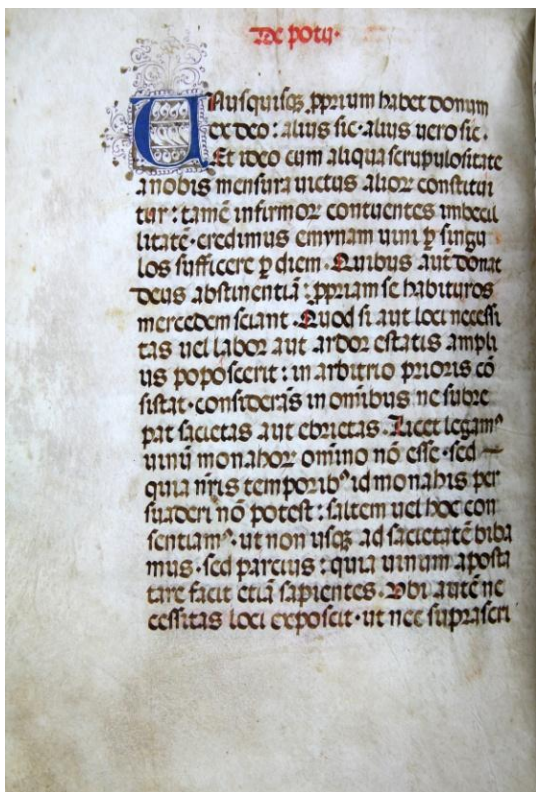 De potu·
UNusquisqꝫ ꝓprium habet donum
ex deo: alius sic·alius uero sic.
Et ideo cum aliqua scrupulositate
a nobis mensura uictus alioꝝ constitui
tur: tamē infirmoꝝ contuentes imbecil
litatē·credimus emynam uini ꝑ singu
los sufficere ꝑ diem. Quibus aut̄ donat
deus abstinentiā: ꝓpriam se habituros
mercedem sciant. Quod si aut loci necessi
tas uel labor aut ardor estatis ampli
us poposcerit: in arbitrio prioris cō
sistat·considerās in om̄ibus ne subre
pat sacietas aut ebrietas. Licet legamꝰ
uinū monahoꝝ omīno nō esse·sed
quia nr̄is temporibꝰ id monahis per
suaderi nō potest: saltem uel hoc con
sentiamꝰ·ut non usqꝫ ad sacietatē biba
mus·sed parcius: quia uinum aposta
tare facit etiā sapientes. Ubi autē ne
cessitas loci exposcit·ut nec suprascri